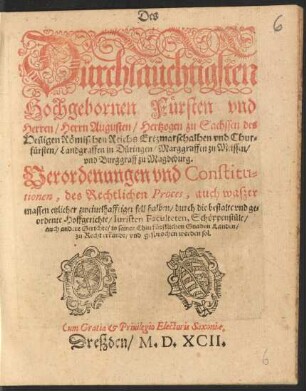 Des
Durchlauchtigsten
Hochgebornen Fürsten vnd
Herren / Herrn Augusten / Hertzogen zu Sachssen des
Heiligen Römischen Reichs Ertzmarschalhen vnd Chur-
fürsten / Landgraffen in Düringen / Marggraffen zu Meissen /
vnd Burggraff zu Magdeburg.
Verordenungen vnd Constitu-
tionen, des Rechtlichen Proces, auch waßzer
massen etlicher zweiuelhafftiger fell halben / durch die bestalte vnd ge-
ordente Hoffgerichte / Juristen Faculteten, Schöppenstüle /
auch andere Gerichte / in seiner Chur fürstlichen Gnaden Landen /
zu Recht erkandt / vnd gesprochen werden sol.
Cum Gratia & Privilegio Electoris Saxoniæ,
Dreßden / M. D. XCII.
6
6